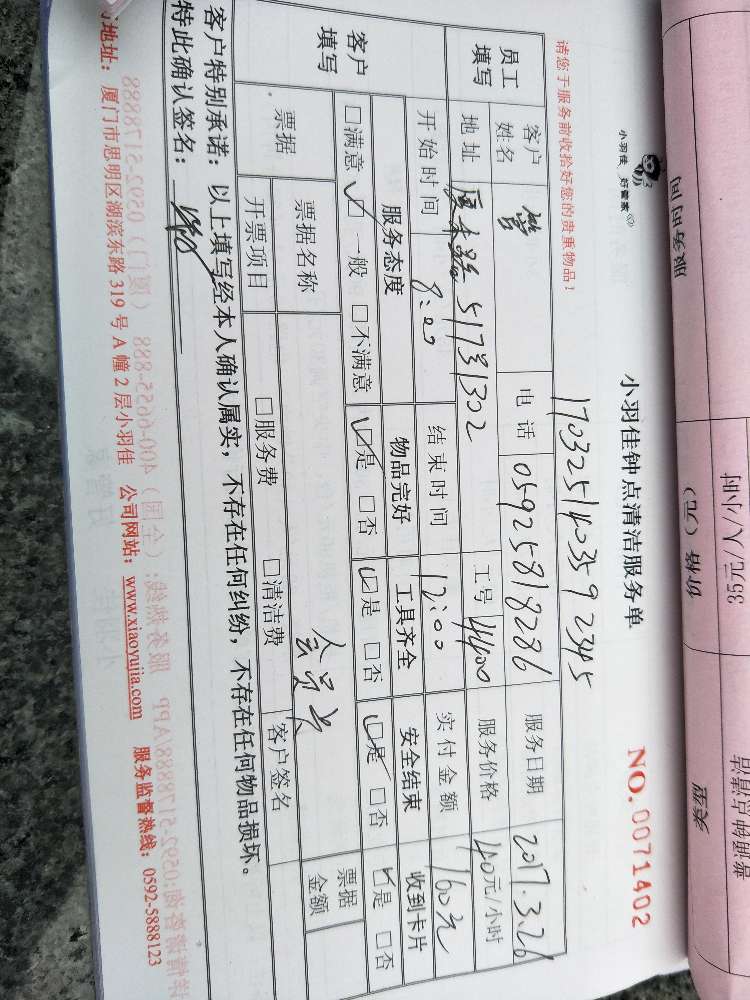 小羽佳 好管家
小羽佳钟点清洁服务单
NO.0071402
170325140359 2345
请您于服务前收拾好您的贵重物品！
员工填写
客户姓名
电话 05925818286
服务日期 2017.3.26
地址
51号1302
工号 4400
服务价格 40元/小时
开始时间 8:00
结束时间 12:00
实付金额 160元
客户填写
服务态度 物品完好 工具齐全 安全结束 收到卡片
□满意 □一般 □不满意 □是 □否 □是 □否 □是 □否 □是 □否
票据
票据名称 会员卡
票据金额
开票项目 □服务费 □清洁费 客户签名
客户特别承诺：以上填写经本人确认属实，不存在任何纠纷，不存在任何物品损坏。
特此确认签名：
地址：厦门市思明区湖滨东路319号A幢2层小羽佳 公司网站：www.xiaoyujia.com 服务监督热线：0592-5888123
服务时间
价格（元）
35元/人/小时
类型
普通钟点清洁